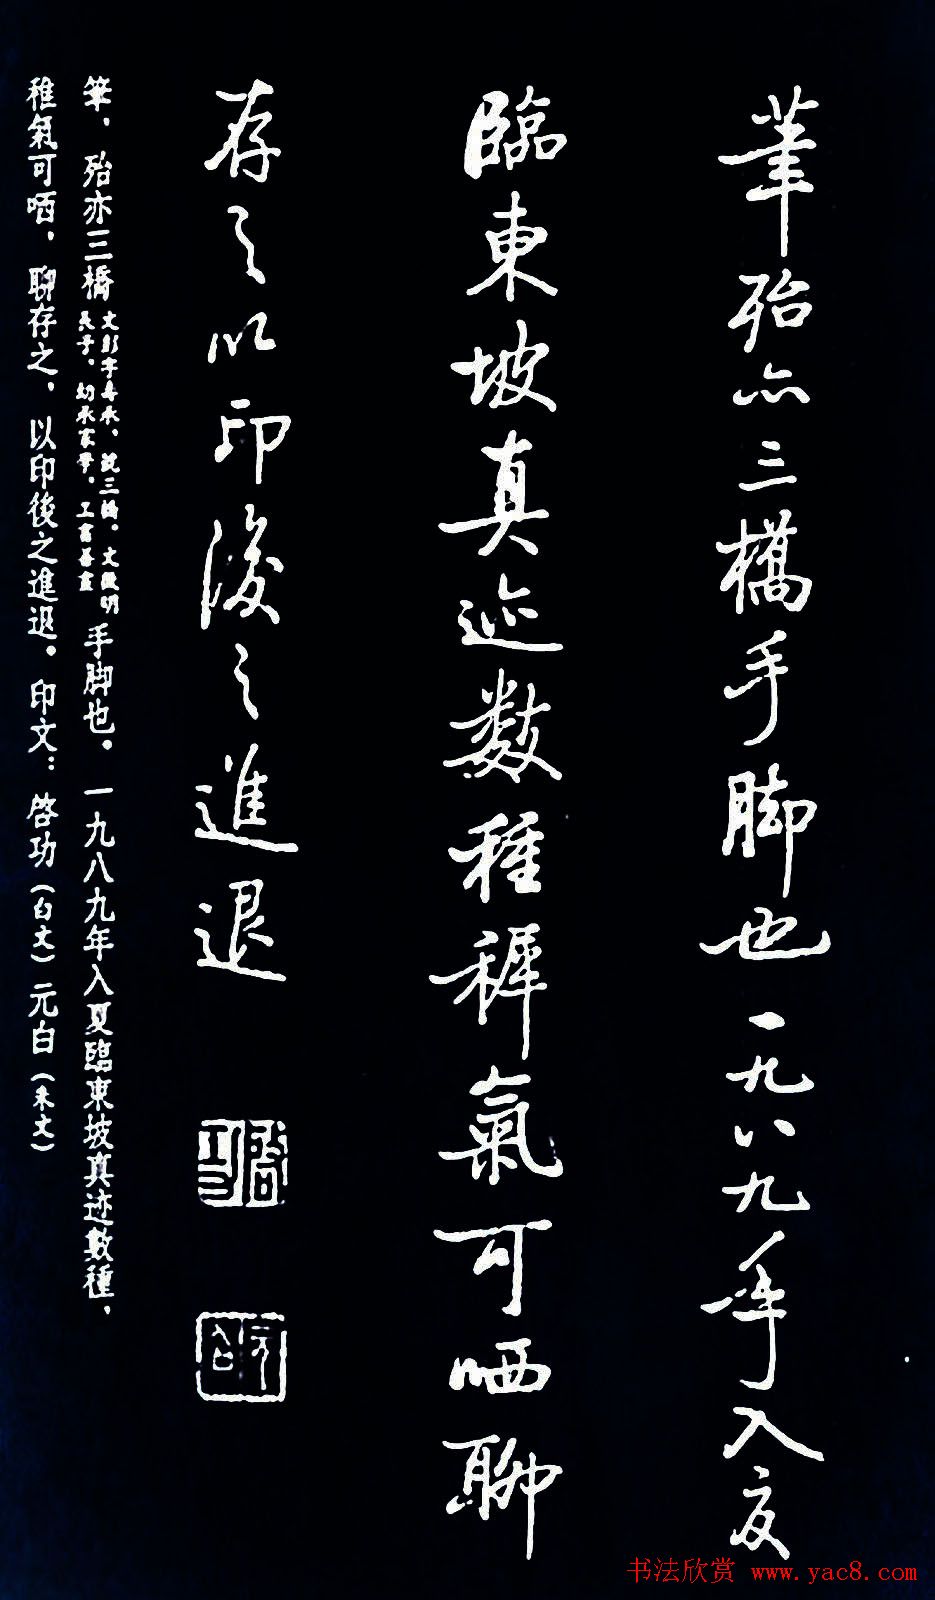 筆殆亦三橋手脚也一九八九年入夏
臨東坡真迹数種穉氣可哂聊
存之以印後之進退
啓功
元白
筆，殆亦三橋文彭字壽承，號三橋。文徵明長子，幼承家學，工書善畫手脚也。一九八九年入夏臨東坡真迹數種，
稚氣可哂，聊存之，以印後之進退。印文：啓功（白文）元白（朱文）
书法欣赏 www.yac8.com